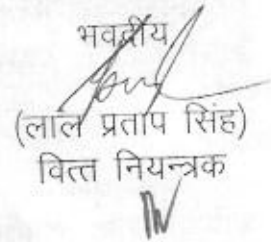 भवदीय
(लाल प्रताप सिंह)
वित्त नियन्त्रक